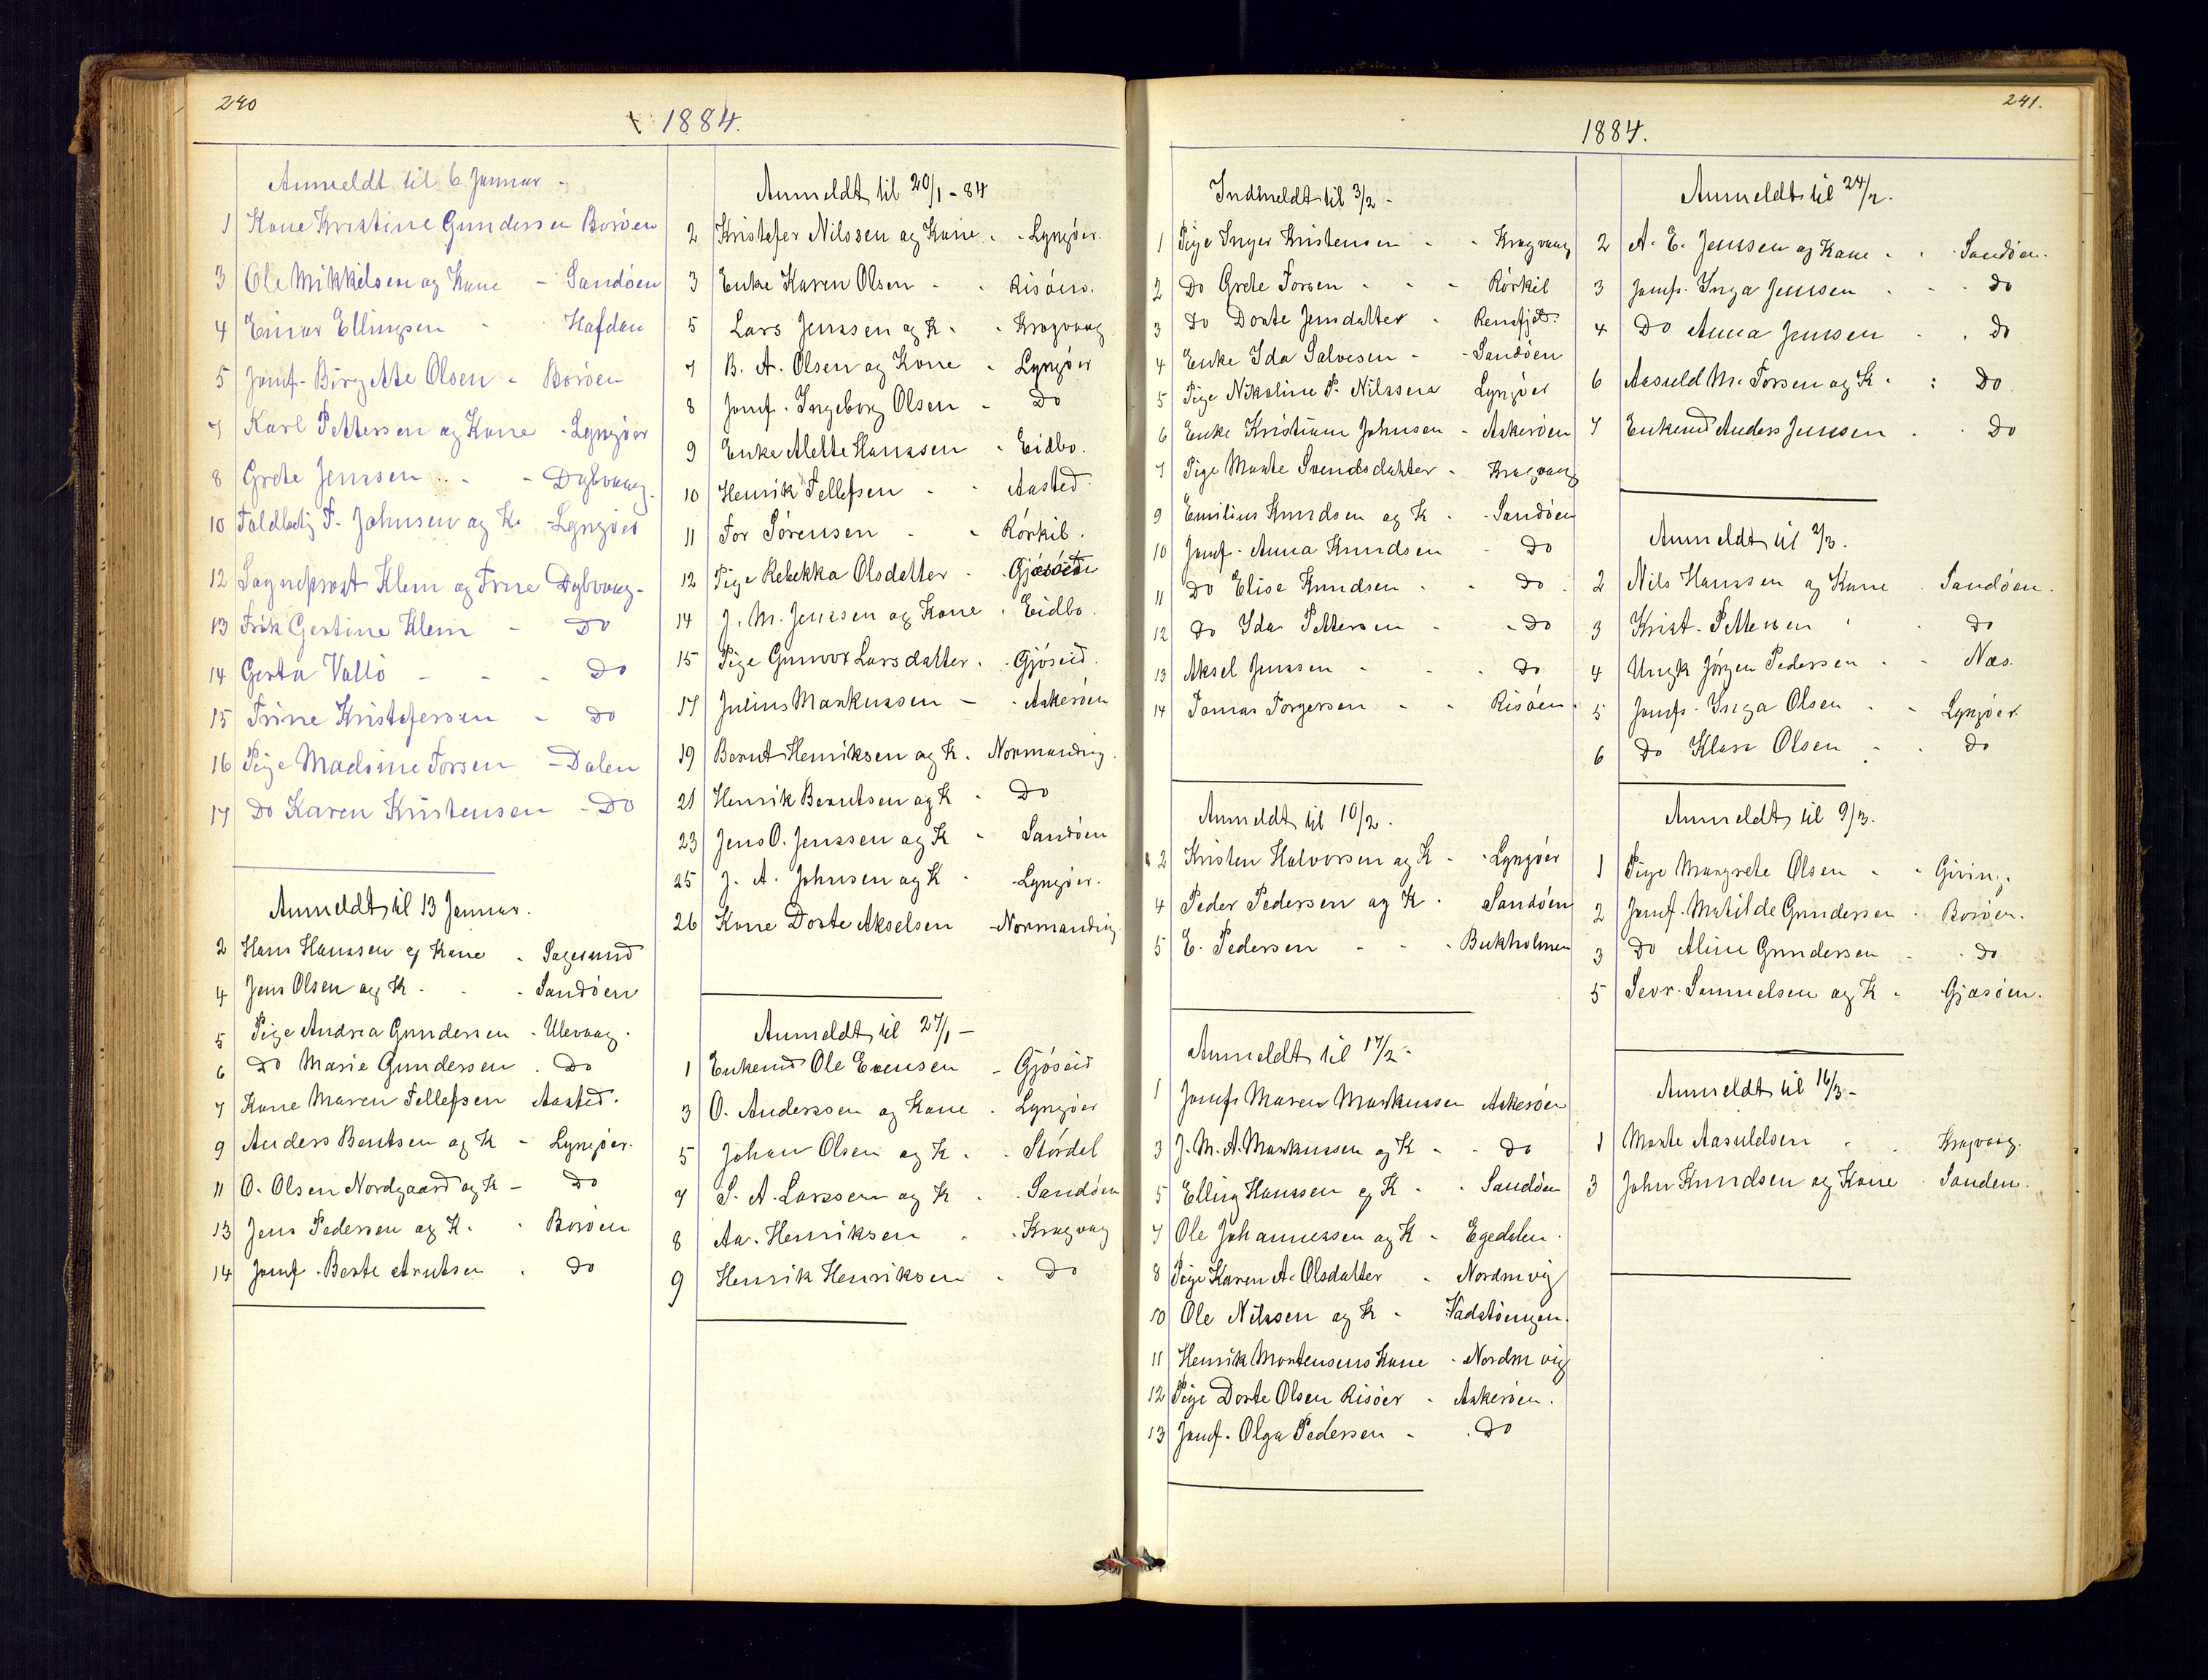 240
1884.
Anmeldt til 6 Januar -
1 Kone Kristine Gundersen Borøen
3 Ole Mikkelsen og Kone - Sandøen
4 Einar Ellingsen - Hafdan
5 Jomf. Birgitte Olsen - Borøen
7 Karl Pettersen og Kone - Lyngøer
8 Grete Jenssen - - Dybvaag.
10 F. Johnsen og K. - Lyngøer
12 Sogneprost Klem og Frue Dybvaag.
13 Frøk Gestine Klem - Do
14 Gerta Vallø - - - Do
15 Trine Kristofersen - Do
16 Pige Madsine Torsen - Dalen
17 Do Karen Kristensen - Do
Anmeldt til 13 Januar.
2 Hans Hanssen og Kone - Sagesund
4 Jens Olsen og K. - - Sandøen
5 Pige Andrea Gundersen - Ulevaag.
6 Do Marie Gundersen . Do
7 Kone Maren Tellefsen Aasted.
9 Anders Bentsen og K - Lyngøer.
11 O. Olsen Nordgaard og K - Do
13 Jens Pedersen og K. - Borøen
14 Jomf. Berte Arntsen . Do
Anmeldt til 20/1 - 84
2 Kristofer Nilssen og Kone . - Lyngøer.
3 Enke Karen Olsen - - Risøen.
5 Lars Jenssen og K - - Kragvaag
7 B. A. Olsen og Kone - Lyngøer
8 Jomf. Ingeborg Olsen - Do
9 Enke Alette Hanssen - Eidbo.
10 Henrik Tellefsen - - Aasted.
11 Tor Sørensen - - Rørkil.
12 Pige Rebekka Olsdatter .
14 J. M. Jenssen og Kone . Eidbo.
15 Pige Gunvor Larsdatter . - Gjøseid.
17 Julius Markussen - - Askerøen
19 Bernt Henriksen og K. Normanding.
21 Henrik Berntsen og K - Do
23 Jens O. Jenssen og K - Sandøen
25 J. A. Johnsen og K - - Lyngøer.
26 Kone Dorte Akselsen - Normanding
Anmeldt til 27/1 -
1 Enkemd Ole Evensen - Gjøseid
3 O. Anderssen og Kone . Lyngøer
5 Johan Olsen og K . - Størdal
7 S. A. Larssen og K . - Sandøen
8 Aa. Henriksen . - Kragvag
9 Henrik Henriksen - Do
241.
1884.
Indmeldt til 3/2 -
1 Pige Inger Kristensen - - Kragvaag
2 Do Grete Torsen - - - Rørkil
3 Do Dorte Jensdatter - Rensfjd.
4 Enke Ida Salvesen - - Sandøen
5 Pige Nikoline P. Nilssen Lyngøer
6 Enke Kristiane Johnsen - Askerøen
7 Pige Marte Svendsdatter - Kragvaag
9 Emilius Knudsen og K - - Sandøen
10 Jomf. Anna Knudsen - Do
11 Do Elise Knudsen - - Do.
12 Do Ida Pettersen - - Do
13 Aksel Jenssen - - - Do
14 Tomas Torgersen - - Risøen.
Anmeldt til 10/2.
2 Kristen Halvorsen og K - - Lyngøer
4 Peder Pedersen og K . Sandøen
5 E. Pedersen - - - Bukholmen
Anmeldt til 17/2 -
1 Jomf. Maren Markussen Askerøen
3 J. M. A. Markussen og K - - Do
5 Elling Hanssen og K - - Sandøen
7 Ole Johannessen og K - Egedalen.
8 Pige Karen A. Olsdatter - Nordmvig
10 Ole Nilssen og K - Vadstøngen.
11 Henrik Mortensens Kone - Nordmvig
12 Pige Dorte Olsen Risøer - Askerøen.
13 Jomf. Olga Pedersen - . Do
Anmeldt til 24/2.
2 A. E. Jenssen og Kone - - Sandøen.
3 Jomf. Inga Jenssen - - - Do
4 Do Anna Jenssen - . Do
6 Aasuld M. Torsen og K - : Do
7 Enkemd Anders Jenssen . . Do
Anmeldt til 2/3.
2 Nils Hanssen og Kone . Sandøen.
3 Krist. Pettersen - - Do
4 Ungk Jørgen Pedersen - - Næs.
5 Jomf. Inga Olsen - - Lyngøer.
6 Do Klara Olsen - - Do
Anmeldt til 9/3.
1 Pige Margrete Olsen - - Giving.
2 Jomf. Matilde Gundersen . Borøen.
3 Do Aline Gundersen - . Do
5 Sevr. Samuelsen og K - Gjæsøen.
Anmeldt til 16/3 -
1 Marte Aasuldsen - . Kragvaag.
3 John Knudsen og Kone . Sanden.